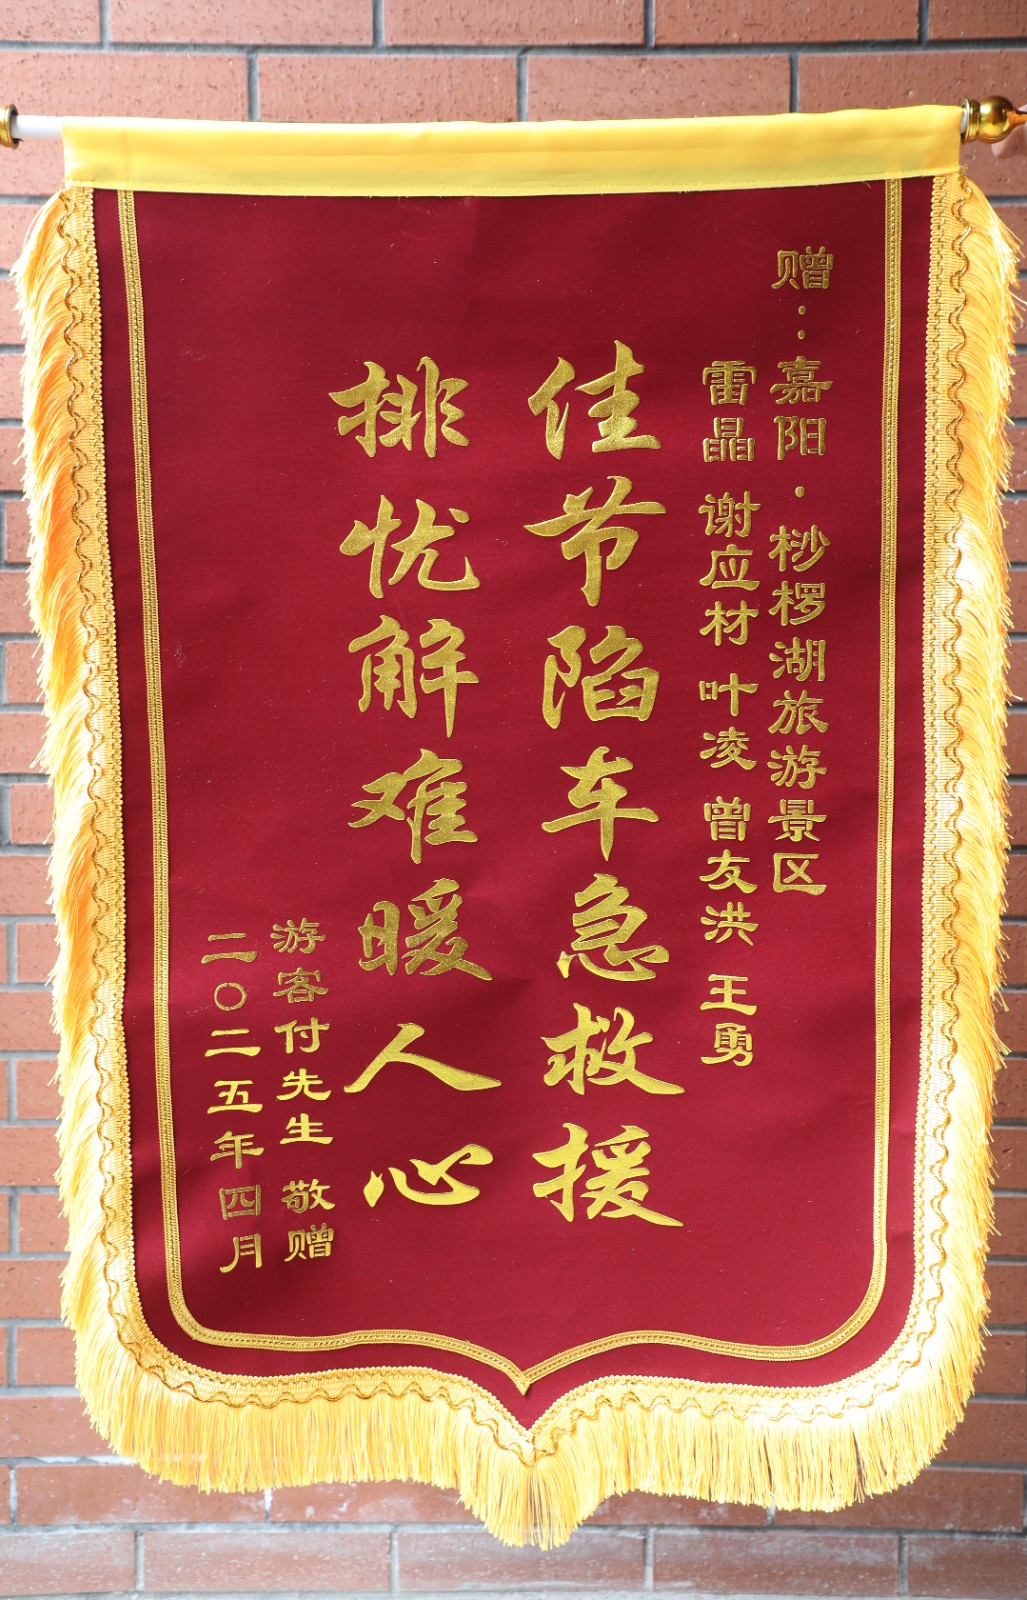 赠：嘉阳·桫椤湖旅游景区
雷晶 谢应材 叶凌 曾友洪 王勇
佳节陷车急救援
排忧解难暖人心
游客付先生 敬赠
二〇二五年四月